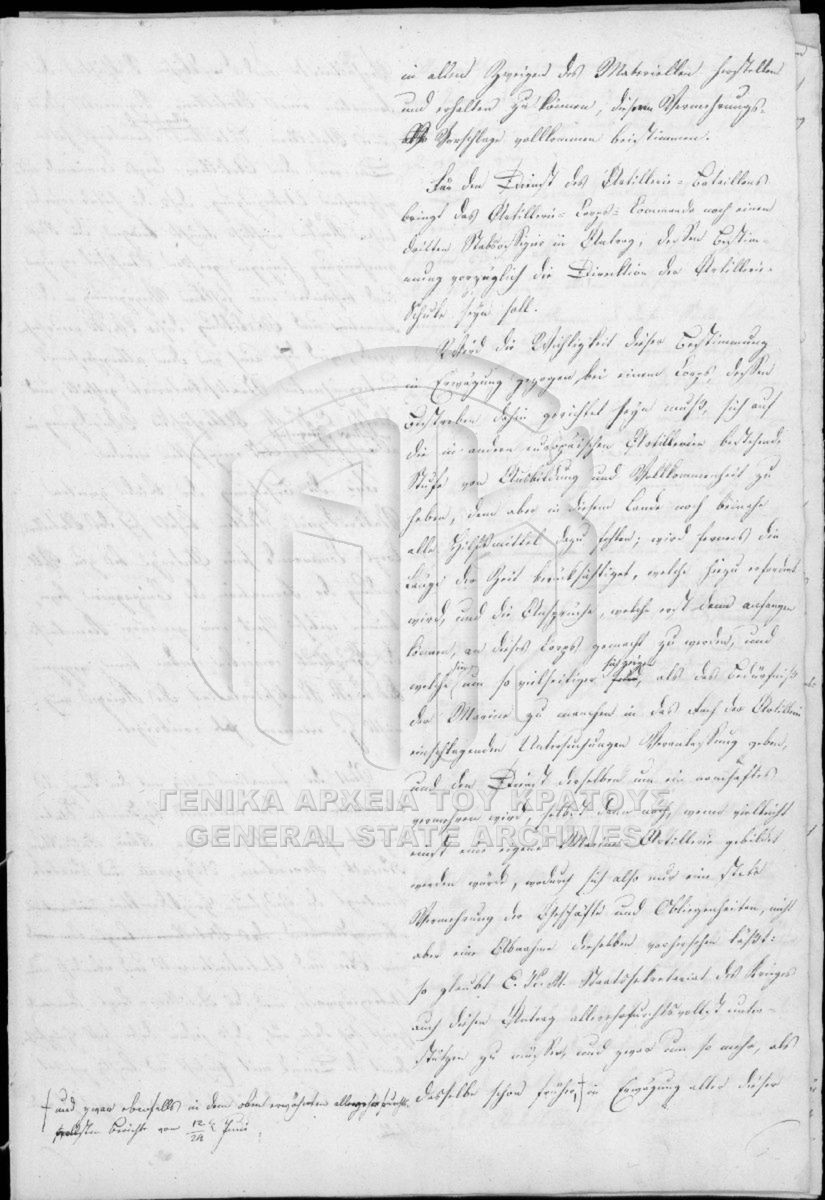 in allen Zweigen des Materiellen herstellen
und erhalten zu können, diesem Vermehrungs-
Vorschlage vollkommen beistimmen.
Für den Dienst des Artillerie-Bataillons
bringt das Artillerie-Corps-Commando noch einen
dritten Stabsoffizier in Antrag, dessen Bestim-
mung vorzüglich die Direktion der Artillerie-
Schule seyn soll.
Wird die Wichtigkeit dieser Bestimmung
in Erwägung gezogen bei einem Corps, dessen
Bestreben dahin gerichtet seyn muß, sich auf
die in andern europäischen Artillerien bestehende
Stufe von Ausbildung und Vollkommenheit zu
heben, dem aber in diesem Lande noch beinahe
alle Hilfsmittel dazu fehlen; wird ferners die
Länge der Zeit berücksichtiget, welche hiezu erfordert
wird, und die Ansprüche, welche erst dann anfangen
können, an dieses Corps gemacht zu werden, und
welche um so vielseitiger, als das Bedürfniß
der Marine zu manchen in das Fach der Artillerie
einschlagenden Untersuchungen Veranlassung geben,
und den Dienst derselben um ein namhaftes
vermehren wird, selbst dann noch, wenn vielleicht
einst eine eigene Marine Artillerie gebildet
werden würde, wodurch sich also nur eine stete
Vermehrung der Geschäfte und Obliegenheiten, nicht
aber eine Abnahme derselben vorhersehen läßt:
so glaubt E. K. M. Staatssekretariat des Krieges
auch diesen Antrag allerehrfurchtsvollst unter-
stützen zu müssen, und zwar um so mehr, als
dasselbe schon früher, in Erwägung aller dieser
und zwar ebenfalls in dem oben erwähnten allerehrfurchts-
vollsten Berichte vom 12/24 Juni
ΓΕΝΙΚΑ ΑΡΧΕΙΑ ΤΟΥ ΚΡΑΤΟΥΣ
GENERAL STATE ARCHIVES